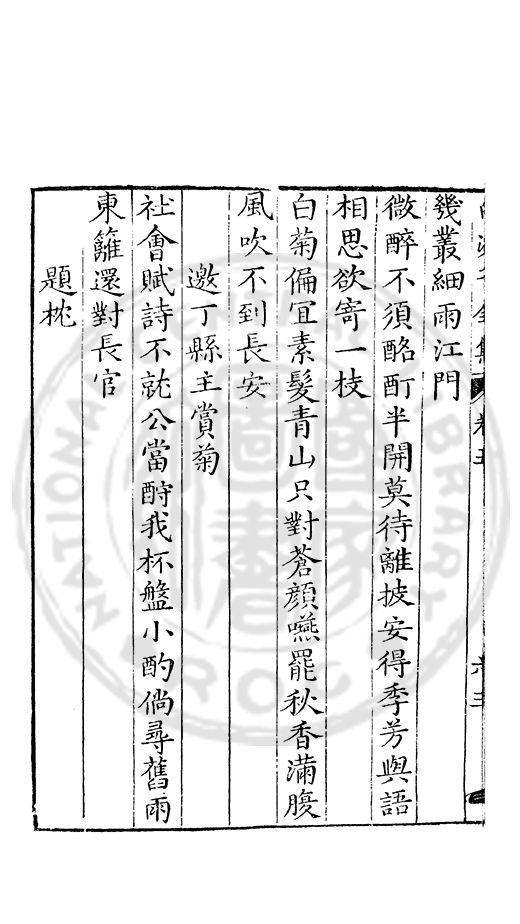 幾叢細雨江門
微醉不須酩酊半開莫待離披安得季芳與語
相思欲寄一枝
白菊偏宜素髮青山只對蒼顏嚥罷秋香滿腹
風吹不到長安
邀丁縣主賞菊
社會賦詩不就公當酹我杯盤小酌倘尋舊雨
東籬還對長官
題枕
NATIONAL